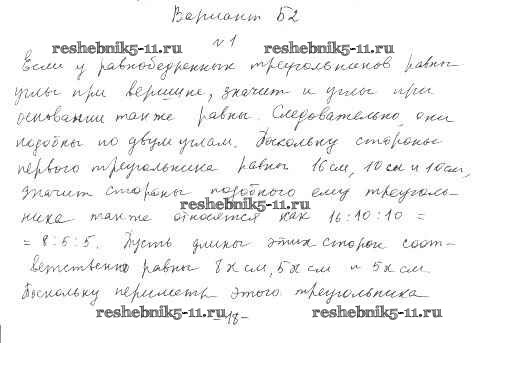 Вариант Б2
№1
reshebnik5-11.ru reshebnik5-11.ru
Если у равнобедренных треугольников равны
углы при вершине, значит и углы при
основании также равны. Следовательно, они
подобны по двум углам. Поскольку стороны
первого треугольника равны 16см, 10см и 10см,
значит стороны подобного ему треуголь-
reshebnik5-11.ru
ника также относятся как 16:10:10 =
= 8:5:5. Пусть длины этих сторон соот-
ветственно равны 8x см, 5x см и 5x см.
Поскольку периметр этого треугольника
reshebnik5-11.ru reshebnik5-11.ru
-18-